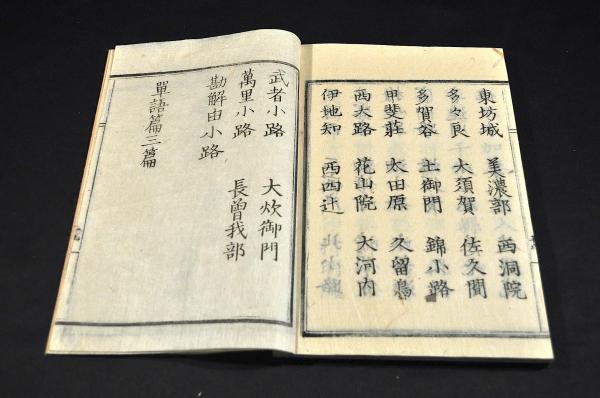 東坊城 美濃部 西洞院
多々良 大須賀 佐久間
多賀谷 土御門 錦小路
甲斐莊 太田原 久留島
西大路 花山院 大河内
伊地知 西四辻
武者小路 大炊御門
萬里小路 長曾我部
勘解由小路
單語篇三篇